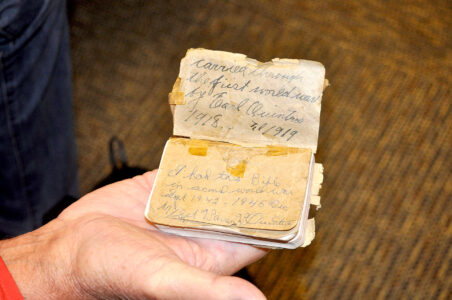 carried through
the first world war
by Earl Quinton
1918. 1919
I had this Bible
in second world war
1942 - 1945